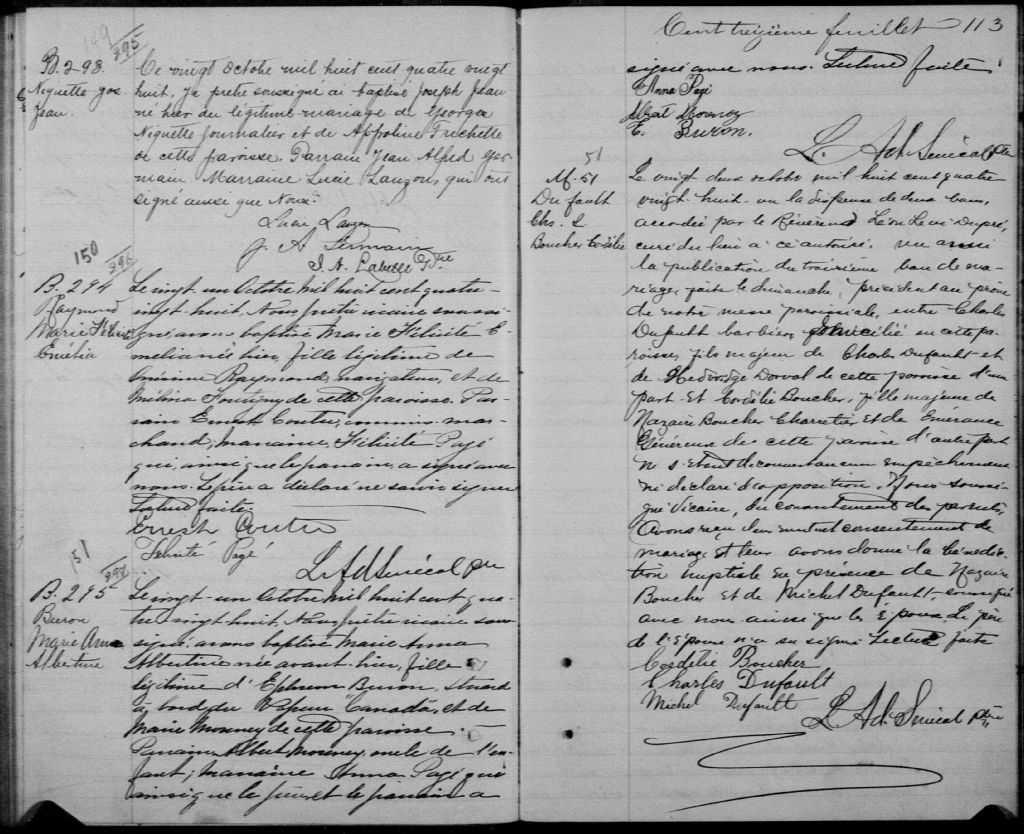 149
295
B. 293.
Niquette Jos
Jean.
Ce vingt Octobre mil huit cent quatre vingt
huit, Je prêtre soussigné ai baptisé Joseph Jean
né hier du légitime mariage de Georges
Niquette journalier et de Appoline Truchette
de cette paroisse. Parrain Jean Alfred Ger-
main Marraine Lucie Lauzon, qui ont
signé aussi que Nous.
J. A. Germain
J. A. Labelle Ptre
150
296
B. 294
Raymond
Marie Félicité
Emélie
Le vingt un Octobre mil huit cent quatre-
vingt huit, Nous prêtre vicaire soussi-
gné avons baptisé Marie Félicité E-
mélia née hier, fille légitime de
Raymond, navigateur, et de
de cette paroisse. Par-
rain Ernest Coutu, commis-mar-
chand; marraine, Félicité Pagé
qui, ainsi que le parrain, a signé avec
nous. Le père a déclaré ne savoir signer
Lecture faite.
Ernest Coutu
Félicité Pagé
L. Ad Senécal ptre
151
297
B. 295
Buron
Marie Anna
Albertine
Le vingt-un Octobre mil huit cent qua-
tre vingt huit, Nous prêtre vicaire sous-
signé, avons baptisé Marie Anna
Albertine née avant hier, fille
légitime d'Ephrem Buron,
à bord du Vapeur Canada, et de
Marie de cette paroisse.
Parrain, Albert oncle de l'en-
fant; marraine Anna Pagé qui
ainsi que le père et le parrain a
Cent treizième feuillet 113
signé avec nous. Lecture faite
Anna Pagé
Albert
E. Buron.
L. Ad. Senécal Ptre
51
M. 51
Dufault
Chs. &
Boucher Cordélie
Le vingt deux octobre mil huit cent quatre
vingt huit - vu la dispense de deux bans,
accordée par le Révérend Léon Levi Dupré,
curé du lieu à ce autorisé. vu aussi
la publication du troisième ban de ma-
riage, faite le dimanche, précédent au prône
de notre messe paroissiale, entre Charles
Dufault barbier, domicilié en cette pa-
roisse, fils majeur de Charles Dufault et
de Hedwidge Dorval de cette paroisse d'une
part - Et Cordélie Boucher, fille majeure de
Nazaire Boucher Charretier et de Emérance
Généreux de cette paroisse d'autre part
Ne s'étant découvert aucun empêchement
ni déclaré d'opposition. Nous soussi-
gné Vicaire, du consentement des parents,
Avons reçu leur mutuel consentement de
mariage et leur avons donné la bénédic-
tion nuptiale en présence de Nazaire
Boucher et de Michel Dufault, soussigné
avec nous ainsi que les Epoux. Le père
de l'Epouse n'a su signer Lecture faite
Cordélie Boucher
Charles Dufault
Michel Dufault
L. Ad. Senécal Ptre